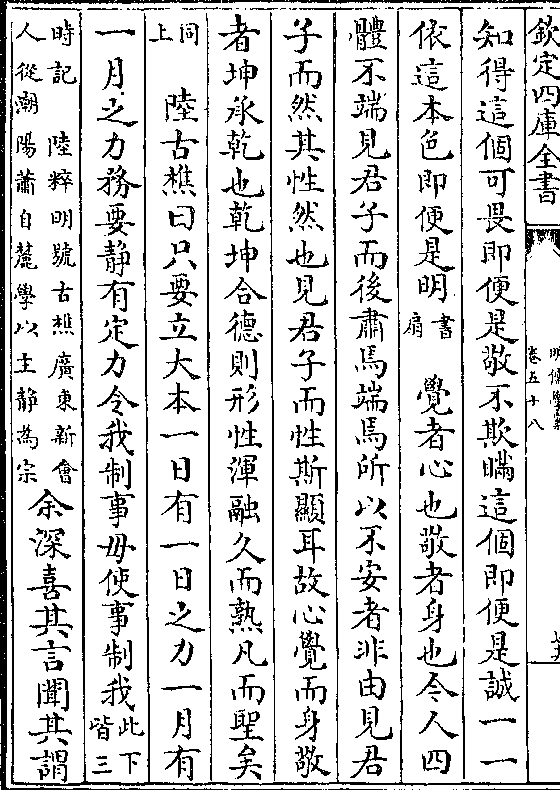 欽定四庫全書
明儒學案
卷五十八
知得這個可畏即便是敬不欺瞞這個即便是誠一一
依這本色即便是明書扃 覺者心也敬者身也今人四
體不端見君子而後肅焉端焉所以不安者非由見君
子而然其性然也見君子而性斯顯耳故心覺而身敬
者坤承乾也乾坤合德則形性渾融久而熟凡而聖矣
同上 陸古樵曰只要立大本一日有一日之力一月有
一月之力務要靜有定力令我制事毋使事制我此下皆三
時記 陸粹明號古樵廣東新會人從潮陽蕭自麓學以主靜為宗 余深喜其言聞其謂